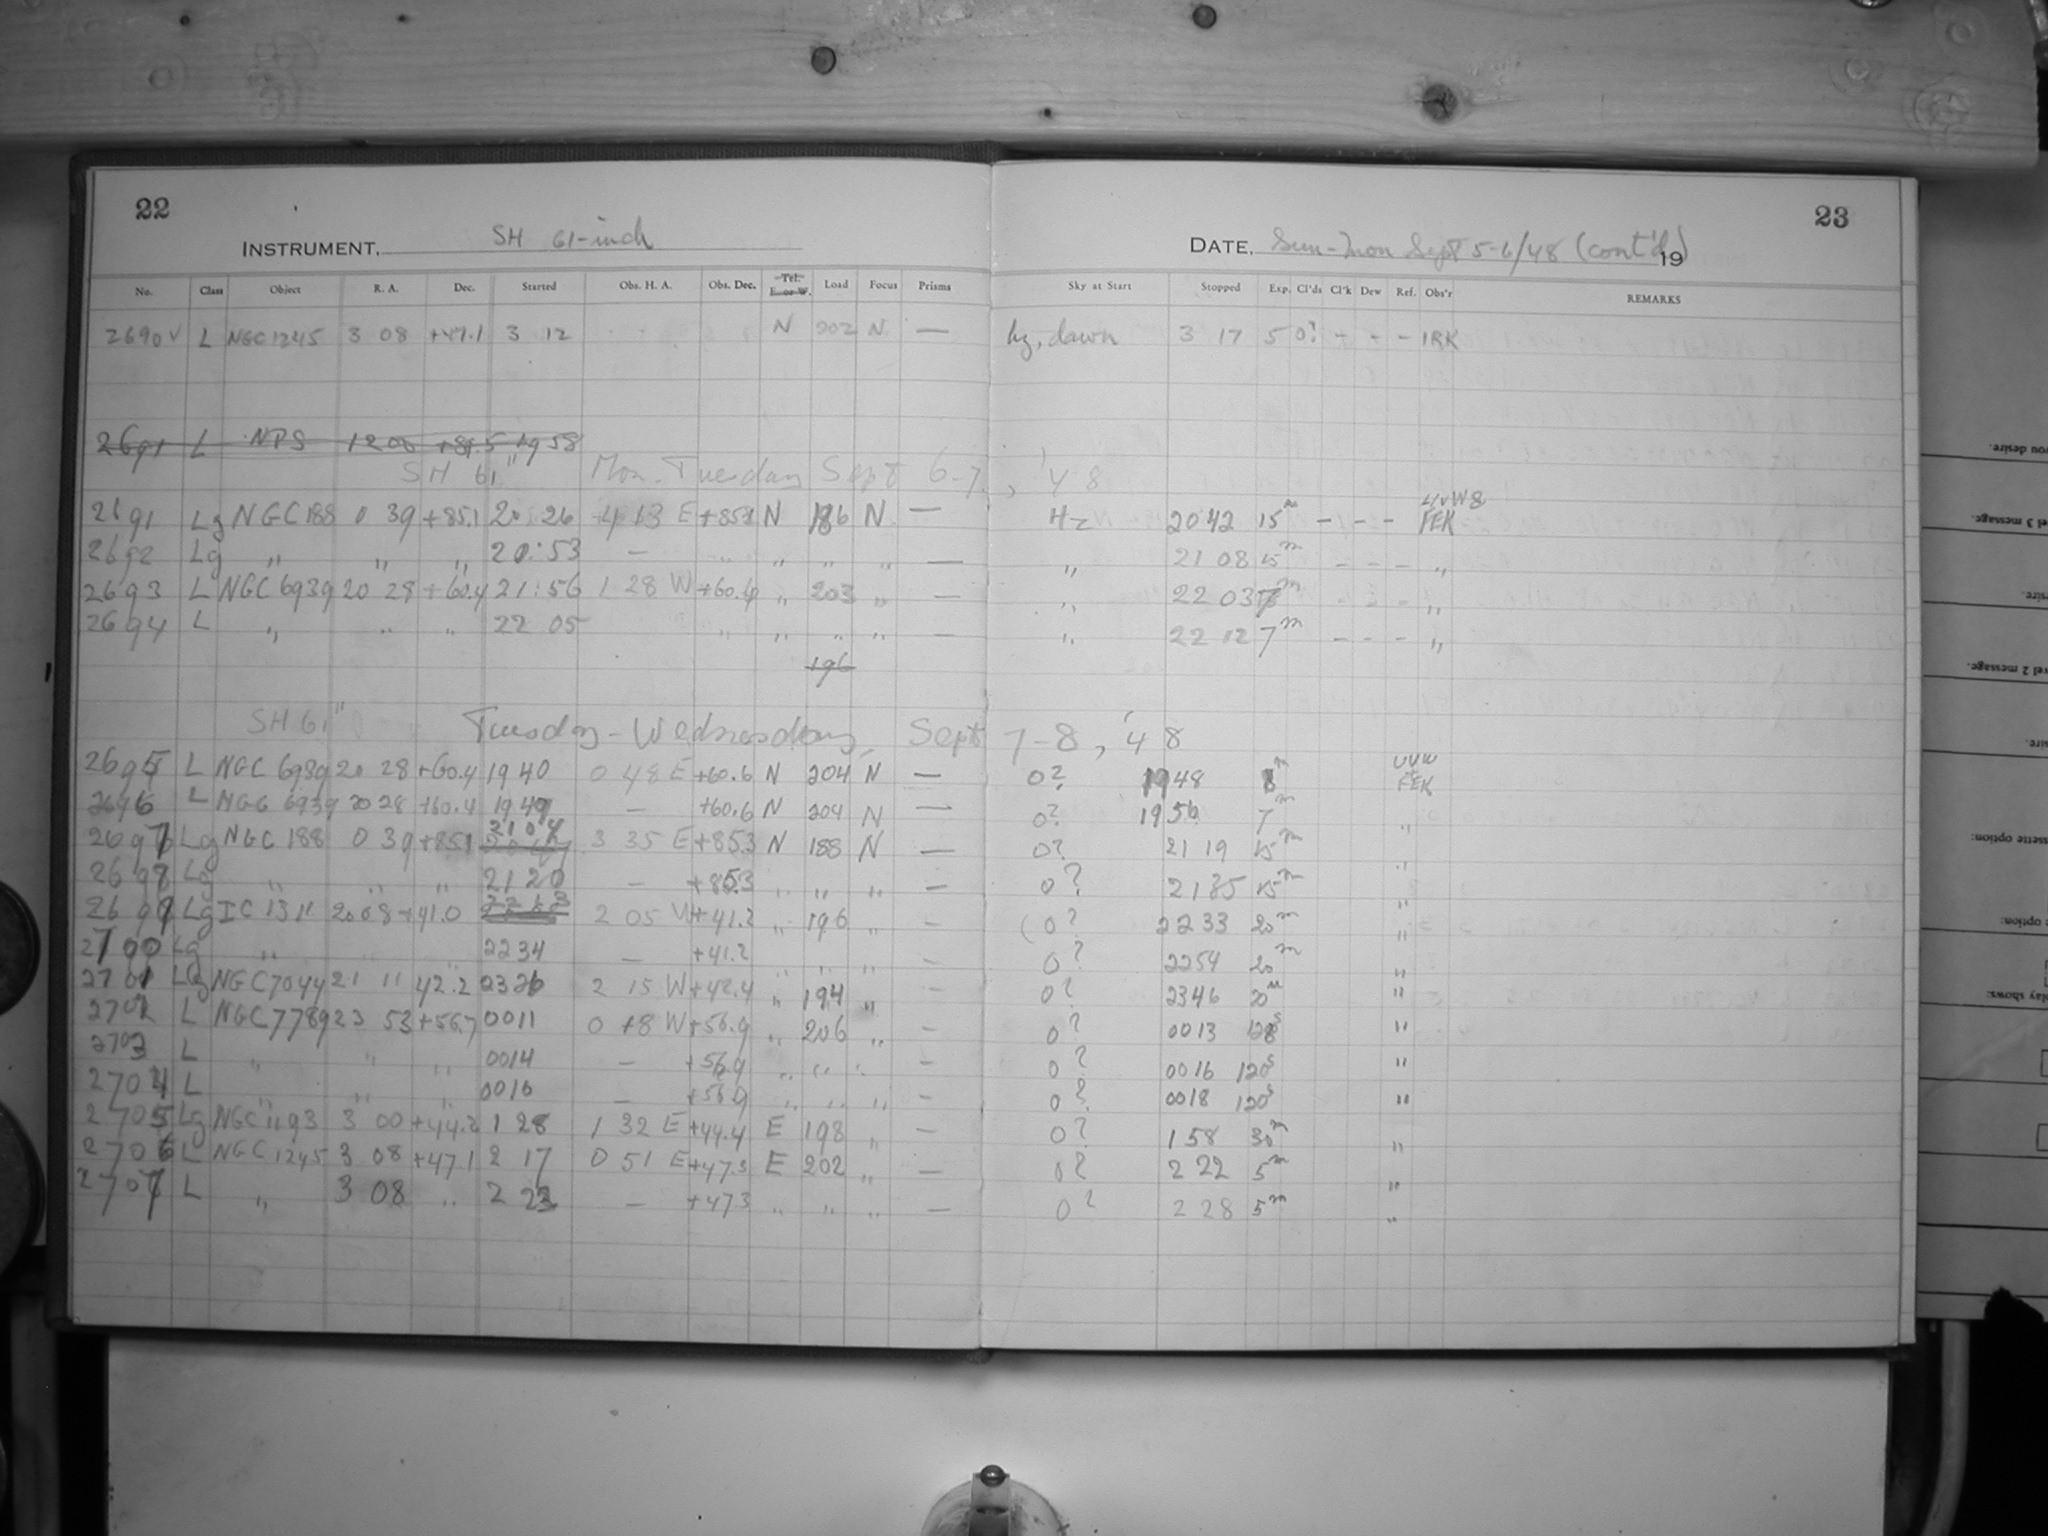 22
23
INSTRUMENT, SH 61-inch
DATE, Sun-Mon Sept 5-6/48 (cont'd) 19
No. Class Object R. A. Dec. Started Obs. H. A. Obs. Dec. Tel. E. or W. Load Focus Prisms Sky at Start Stopped Exp. Cl'ds Cl'k Dew Ref. Obs'r REMARKS
2690 v L NGC 1245 3 08 +47.1 3 12 N 202 N — hz, dawn 3 17 5 0? - - - IRK
2691 L NPS 12 00 19 58
SH 61" Mon. Tuesday Sept 6-7, '48
2691 Lg NGC 188 0 39 +85.1 20 26 4 13 E N 186 N — Hz 20 42 15m - - - FEK
2692 Lg " " " 20:53 — " " " " — " 21 08 15m - - - "
2693 L NGC 6939 20 28 +60.4 21:56 1 28 W +60.4 " 203 " — " 22 03 7m - "
2694 L " " " 22 05 " " " " — " 22 12 7m - - - "
196
SH 61" Tuesday-Wednesday, Sept 7-8, '48
2695 L NGC 6939 20 28 +60.4 19 40 0 48 E +60.6 N 204 N — 0? 1948 8m FEK
2696 L NGC 6939 20 28 +60.4 19 49 — +60.6 N 204 N — 0? 1956 7m "
2697 Lg NGC 188 0 39 +85.1 3 35 E +85.3 N 188 N — 0? 21 19 15m "
2698 Lg " " " 2120 — +85.3 " " " — 0? 2135 15m "
2699 Lg IC 1311 20 08 +41.0 2 05 W +41.2 " 196 " — (0? 2233 20m "
2700 Lg " " 2234 — +41.2 " " " — 0? 2254 20m "
2701 Lg NGC 7044 21 11 42.2 2326 2 15 W +42.4 " 194 " — 0? 2346 20m "
2702 L NGC 7789 23 53 +56.7 0011 W +56.9 " 206 " — 0? 0013 120s "
2703 L " " " 0014 — +56.9 " " " — 0? 0016 120s "
2704 L " " " 0016 — +56.9 " " " — 0? 0018 120s "
2705 Lg NGC 1193 3 00 +44.2 1 28 1 32 E +44.4 E 198 " — 0? 1 58 30m "
2706 L NGC 1245 3 08 +47.1 2 17 0 51 E +47.3 E 202 " — 0? 2 22 5m "
2707 L " 3 08 " 2 23 — +47.3 " " " — 0? 2 28 5m "
you desire.
vel 3 message.
sire.
vel 2 message.
sire.
ssette option:
option:
play shows: